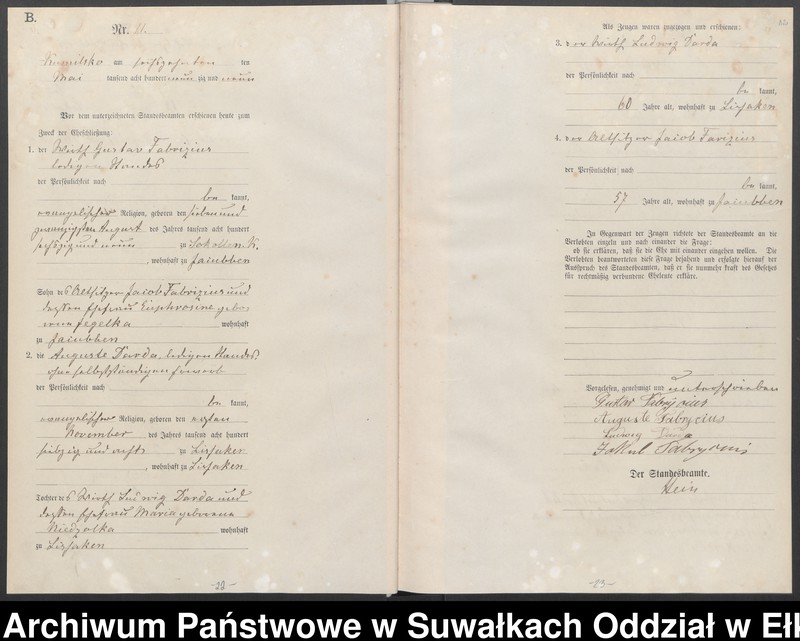 B.
Nr. 11.
Kumilsko am sechszehnten ten
Mai tausend acht hundert neun zig und neun
Vor dem unterzeichneten Standesbeamten erschienen heute zum
Zweck der Eheschließung:
1. der Wirth Gustav Fabrizius
ledigen Standes
der Persönlichkeit nach
be kannt,
evangelischer Religion, geboren den sieben und
zwanzigsten August des Jahres tausend acht hundert
sechszig und neun zu Sokollen K.
, wohnhaft zu
Sohn des Altsitzer Jacob Fabrizius und
dessen Ehefrau Euphrosine gebo-
rene Jegelka wohnhaft
zu
2. die Auguste Darda, ledigen Standes,
ohne selbstständigen Erwerb
der Persönlichkeit nach
be kannt,
evangelischer Religion, geboren den ersten
November des Jahres tausend acht hundert
siebzig und sechs zu Lissaken
, wohnhaft zu Lissaken
Tochter des Wirth Ludwig Darda und
dessen Ehefrau Maria geborene
Niedzolka wohnhaft
zu Lissaken
-22-
Als Zeugen waren zugezogen und erschienen:
3. der Wirth Ludwig Darda
der Persönlichkeit nach
be kannt,
60 Jahre alt, wohnhaft zu Lissaken
4. der Altsitzer Jacob
der Persönlichkeit nach
be kannt,
57 Jahre alt, wohnhaft zu
In Gegenwart der Zeugen richtete der Standesbeamte an die
Verlobten einzeln und nach einander die Frage:
ob sie erklären, daß sie die Ehe mit einander eingehen wollen. Die
Verlobten beantworteten diese Frage bejahend und erfolgte hierauf der
Ausspruch des Standesbeamten, daß er sie nunmehr kraft des Gesetzes
für rechtmäßig verbundene Eheleute erkläre.
Vorgelesen, genehmigt und unterschrieben
Gustav Fabrycius
Auguste Fabrycius
Ludwig Darda
Jakub Fabrycius
Der Standesbeamte.
Hein
-23-
Archiwum Państwowe w Suwałkach Oddział w Eł